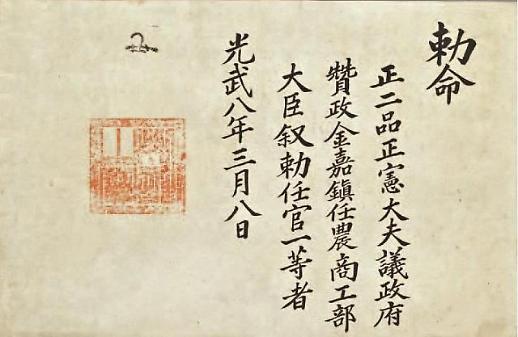 勅命
正二品正憲大夫議政府
贊政金嘉鎭任農商工部
大臣叙勅任官一等者
光武八年三月八日